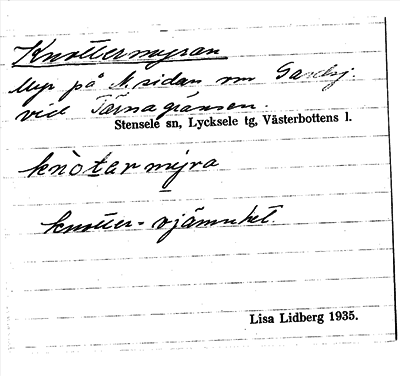 Knottermyran
Myr på N. sidan om
vid Tärnagränsen.
Stensele sn, Lycksele tg, Västerbottens l.
knòtar myra
knotter = ojämnhet.
Lisa Lidberg 1935.